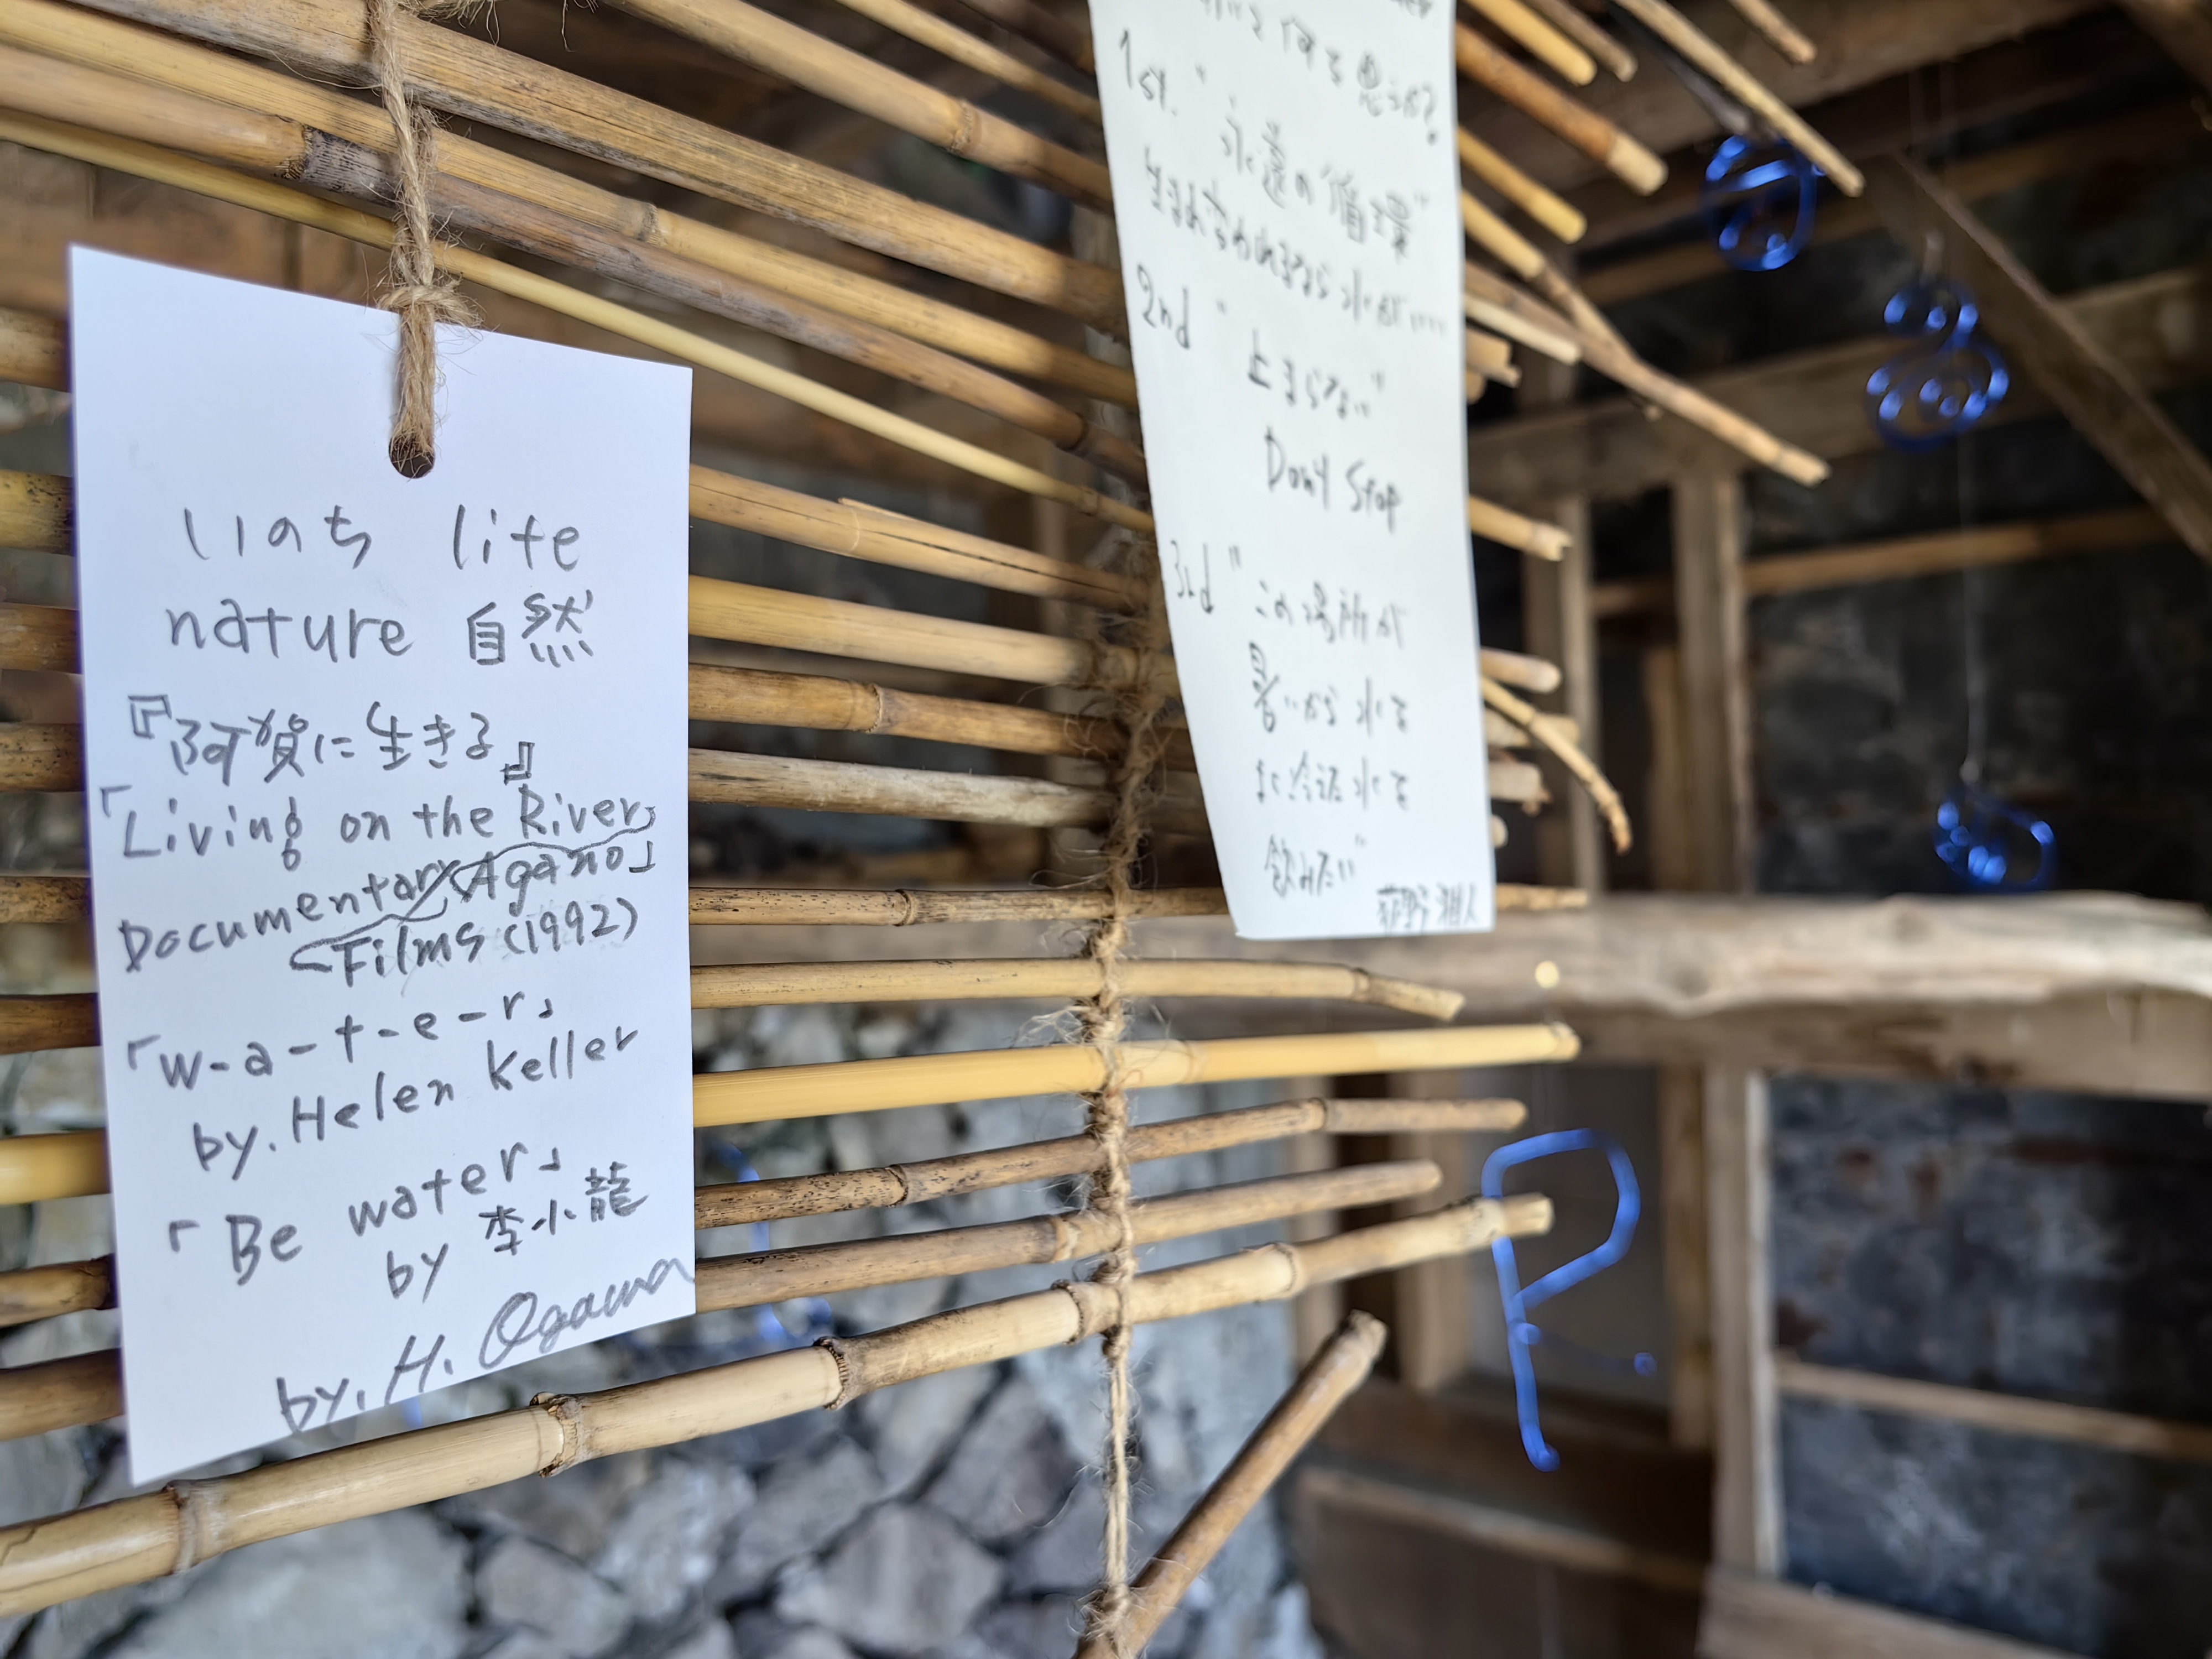 いのち life
nature 自然
『阿賀に生きる』
「Living on the River
Agano」
Documentary
Films (1992)
「w-a-t-e-r」
by. Helen Keller
「Be water」
by 李小龍
by. H. Ogawa
何を思うか?
1st. "永遠の"循環"
生まれ変われるなら水が.....
2nd "止まらない"
Don't Stop
3rd "この場所が
暑いから水を
飲みたい"
P